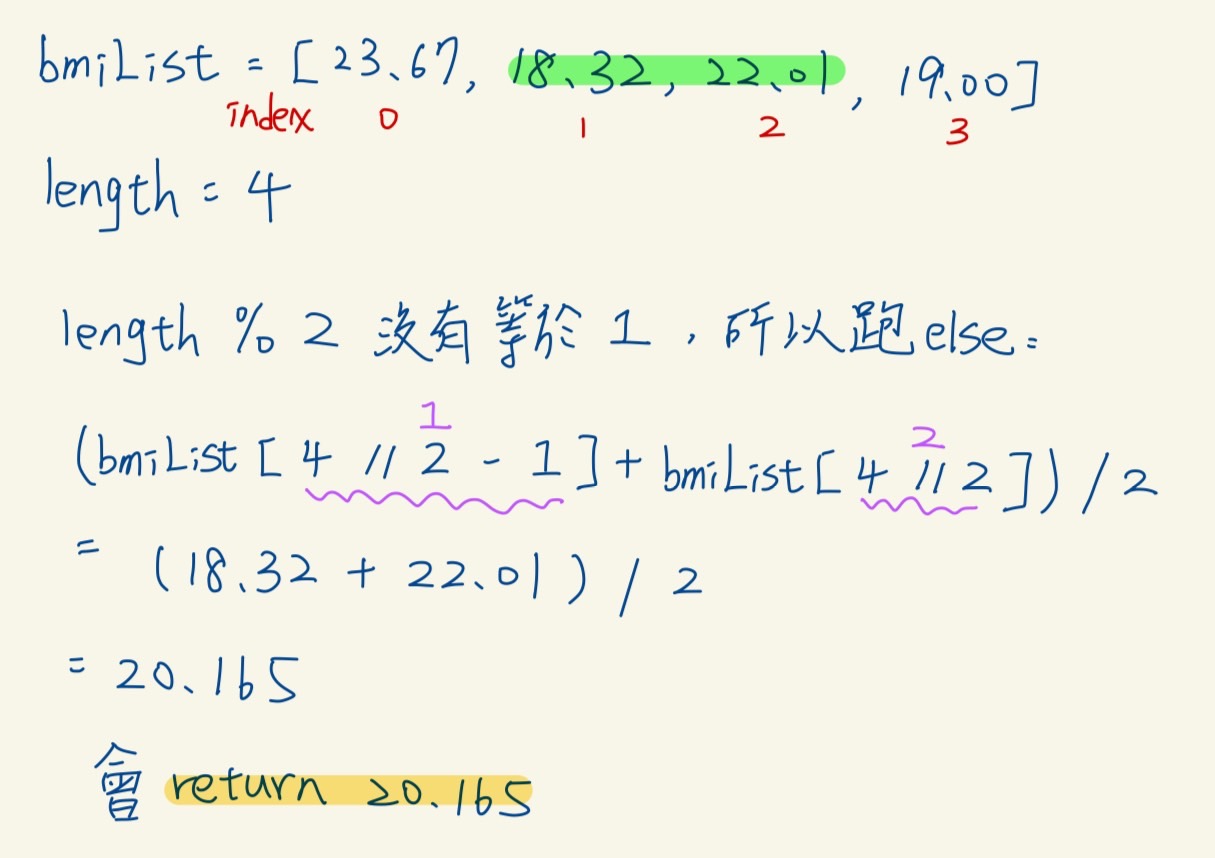 bmiList = [23.67, 18.32, 22.01, 19.00]
index 0 1 2 3
length = 4
length % 2 沒有等於 1，所以跑 else：
1 2
(bmiList [ 4 // 2 - 1 ] + bmiList [ 4 // 2 ] ) / 2
= (18.32 + 22.01) / 2
= 20.165
會 return 20.165